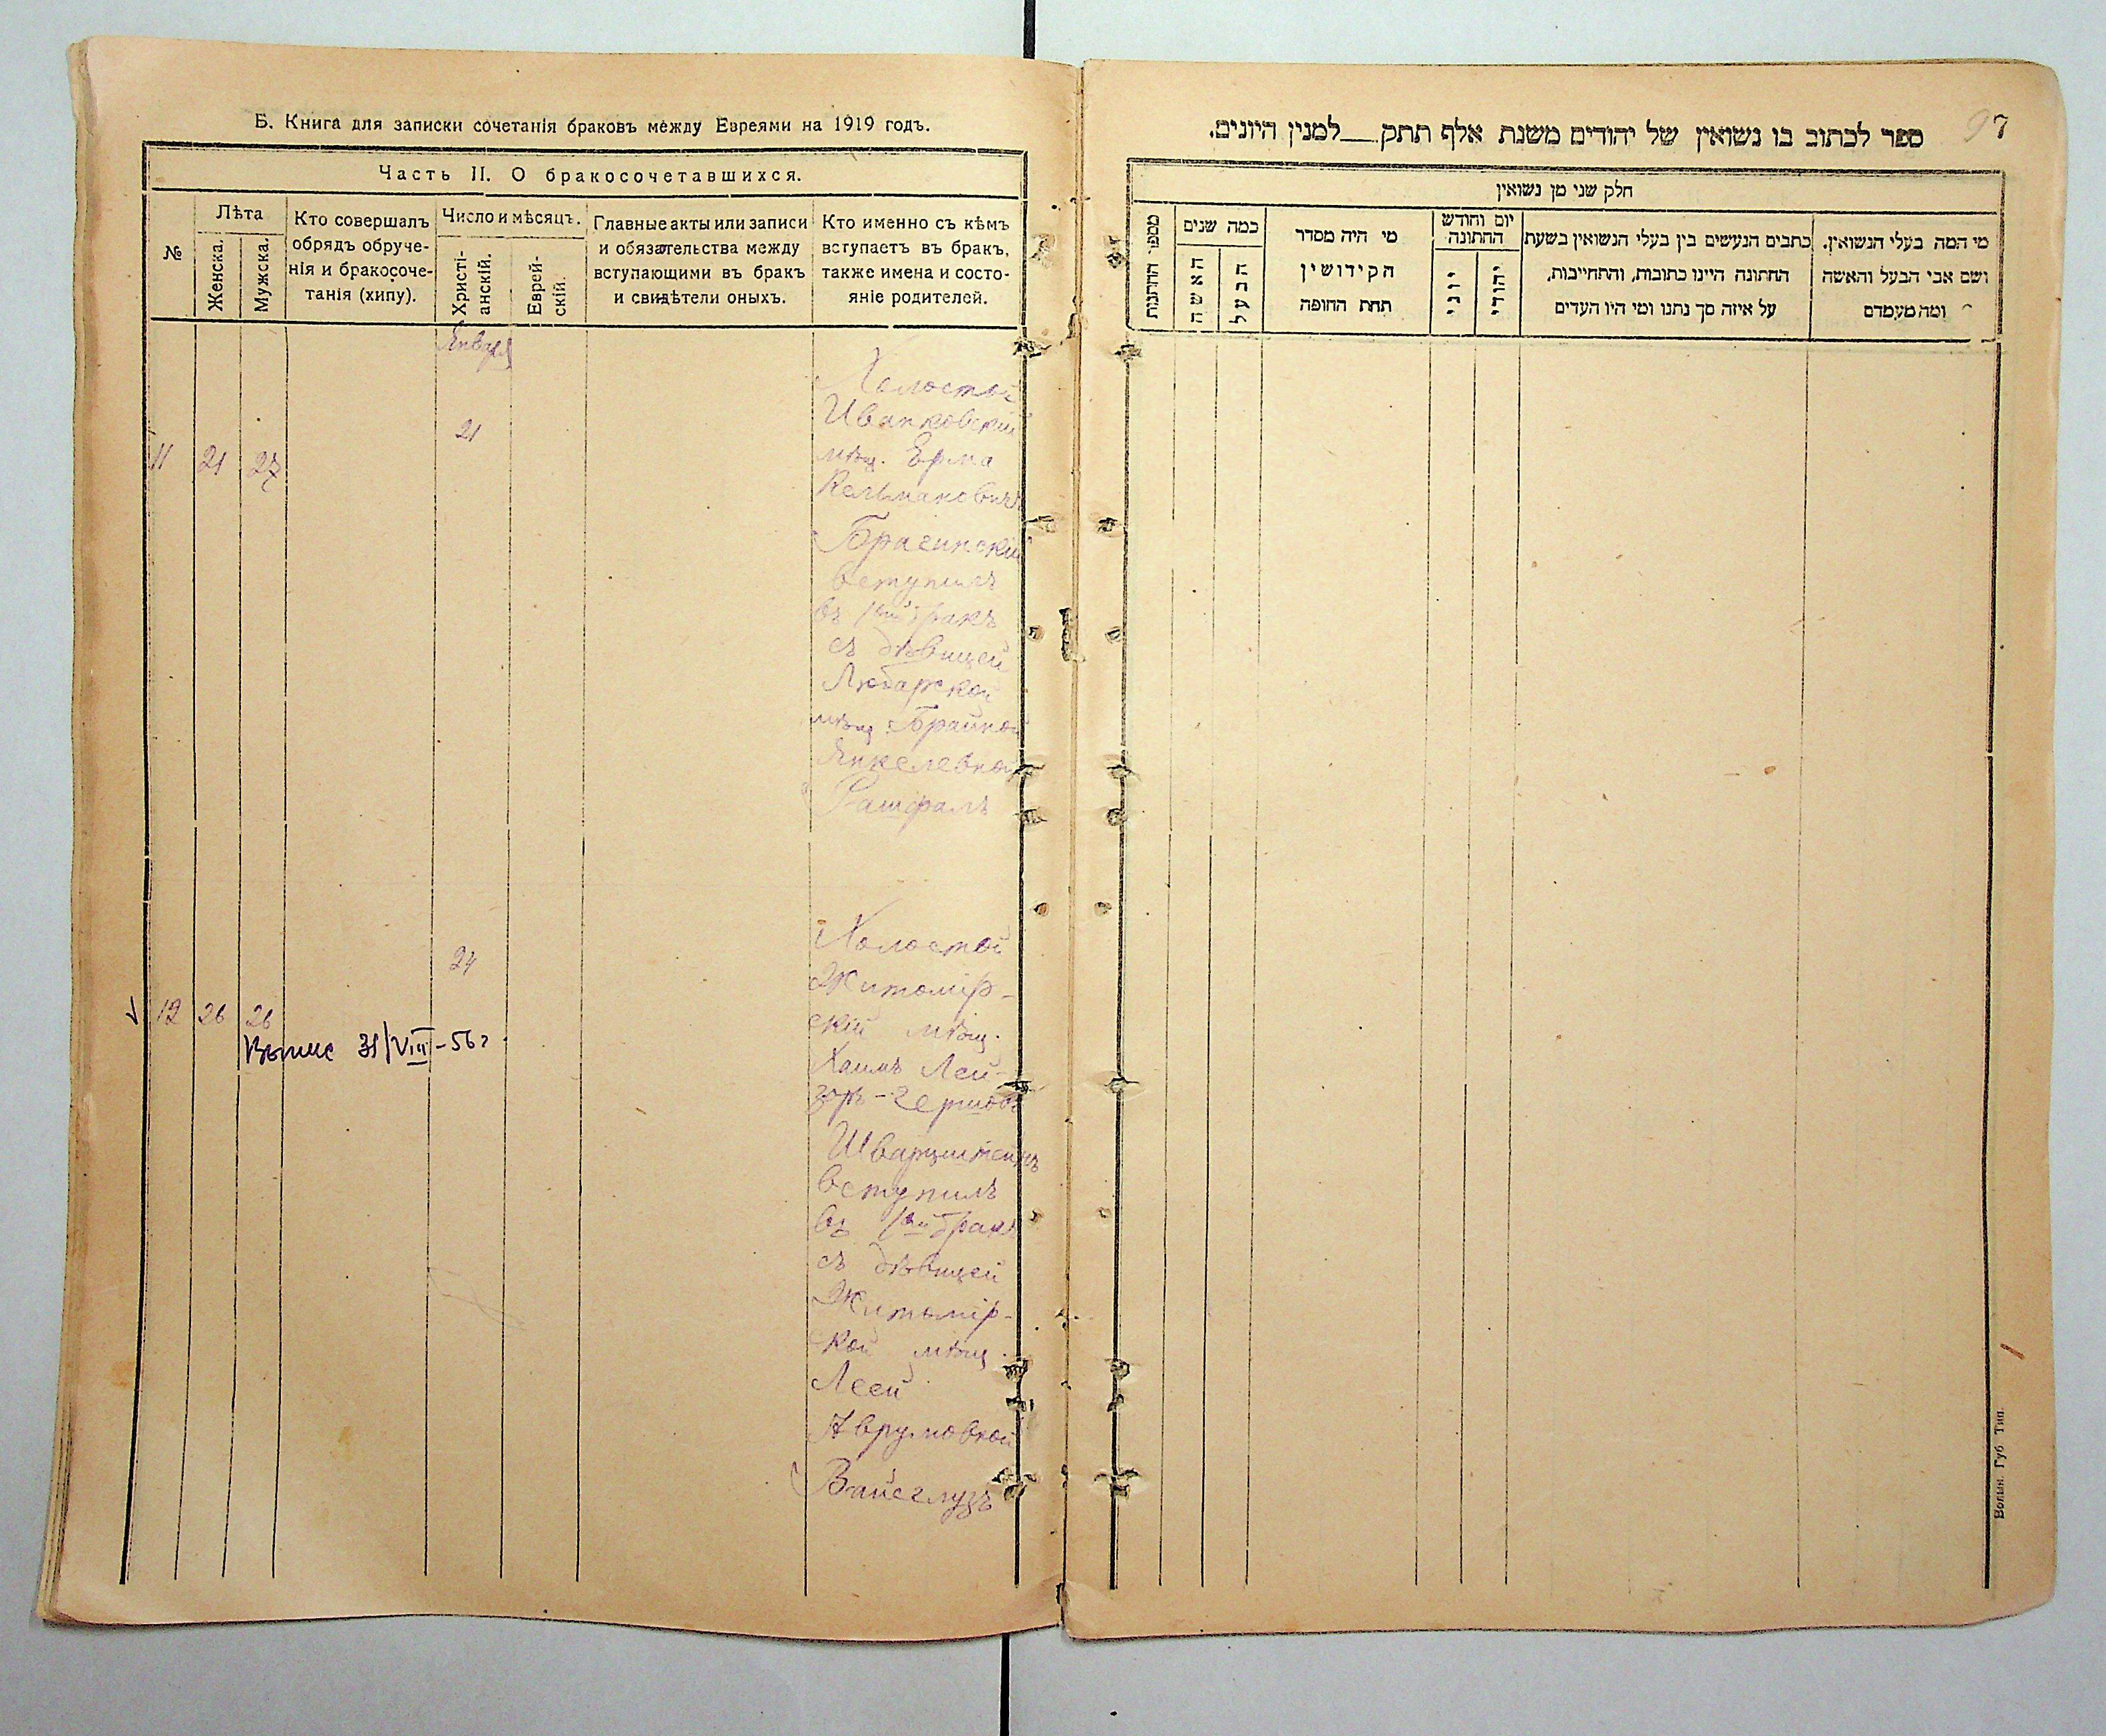 Б. Книга для записки сочетанія браковъ между Евреями на 1919 годъ.
Часть II. О бракосочетавшихся.
№
Лѣта
Женска.
Мужска.
Кто совершалъ
обрядъ обруче-
нія и бракосоче-
танія (хипу).
Число и мѣсяцъ.
Христі-
анскій.
Еврей-
скій.
Главные акты или записи
и обязательства между
вступающими въ бракъ
и свидѣтели оныхъ.
Кто именно съ кѣмъ
вступаетъ въ бракъ,
также имена и состо-
яніе родителей.
Января
11
21
27
21
Холостой
Иванковскій
мѣщ.
Кельмановичъ
Брагинскій
вступилъ
въ 1ый бракъ
съ дѣвицей
Любарской
мѣщ. Брайной
Янкелевной
12
26
26
24
Выпис 31/VIII-56г.
Холостой
Житомір-
скій мѣщ.
Хаимъ Лей-
зоръ-Герш
Шварцштейнъ
вступилъ
въ 1ый бракъ
съ дѣвицей
Житомір-
кой мѣщ.
Леей
Аврумовной
Вайсглузъ
97
ספר לכתוב בו נשואין של יהודים משנת אלף תתק__למנין היונים.
חלק שני מן נשואין
מספר החתנות
כמה שנים
האשה
הבעל
מי היה מסדר
הקידושין
תחת החופה
יום וחודש
החתונה
יוני
יהודי
כתבים הנעשים בין בעלי הנשואין בשעת
החתונה היינו כתובות, והתחייבות,
על איזה סך נתנו ומי היו העדים
מי המה בעלי הנשואין.
ושם אבי הבעל והאשה
ומה מעמדם
Волын. Губ Тип.